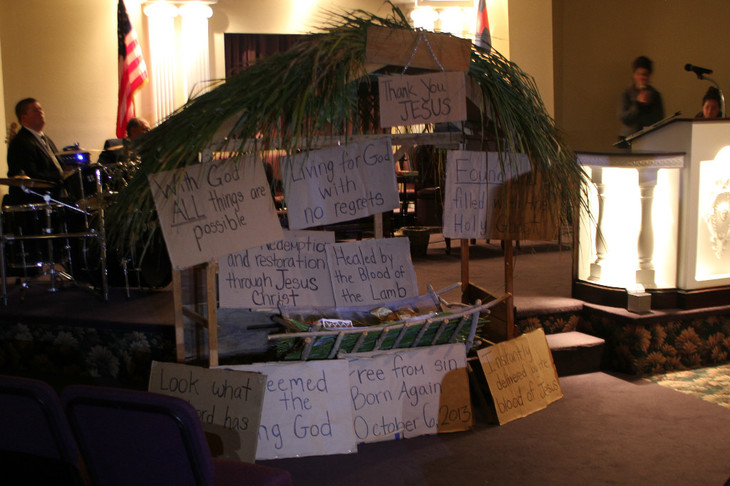 Thank You
JESUS
With God
ALL things are
possible
Living for God
with
no regrets
Found
filled
Holy
Redemption
and restoration
through Jesus
Christ
Healed by
the Blood of
the Lamb
Look what
has
the
God
Free from sin
Born Again
October 6, 2013
Instantly
delivered by the
blood of Jesus